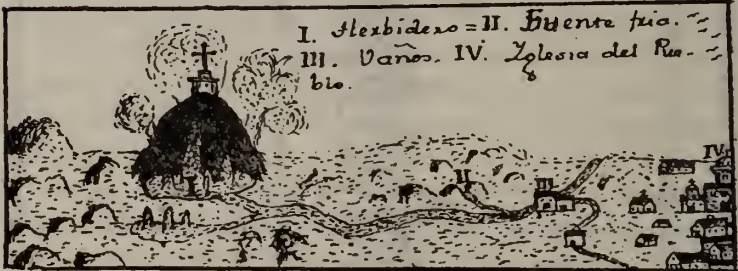 I. Herbidero = II. Fuente fria.
III. Vaños. IV. Iglesia del Pue-
blo.
IV
II
III